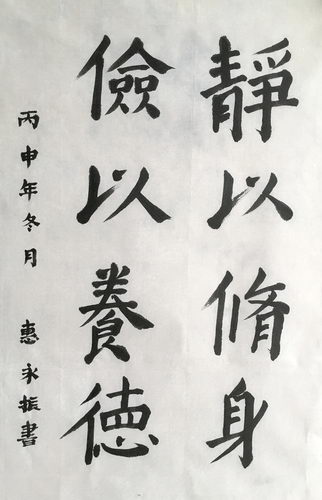 靜以脩身
儉以養德
丙申年冬月 惠永振書